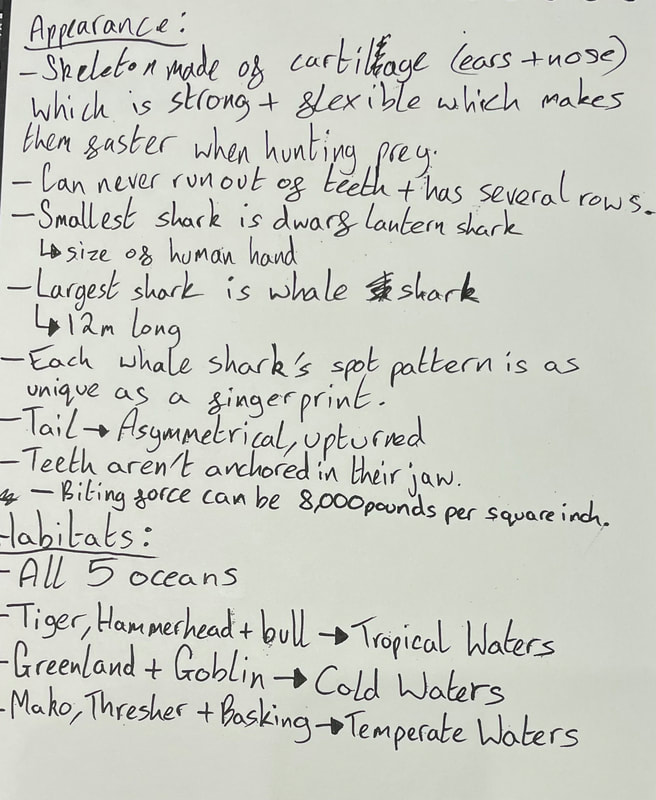 Appearance:
- Skeleton made of cartilage (ears + nose)
which is strong + flexible which makes
them faster when hunting prey.
- Can never run out of teeth + has several rows.
- Smallest shark is dwarf lantern shark
↳ size of human hand
- Largest shark is whale shark
↳ 12m long
- Each whale shark's spot pattern is as
unique as a fingerprint.
- Tail → Asymmetrical, upturned
- Teeth aren't anchored in their jaw.
- Biting force can be 8,000 pounds per square inch.
Habitats:
- All 5 oceans
- Tiger, Hammerhead + bull → Tropical Waters
- Greenland + Goblin → Cold Waters
- Mako, Thresher + Basking → Temperate Waters